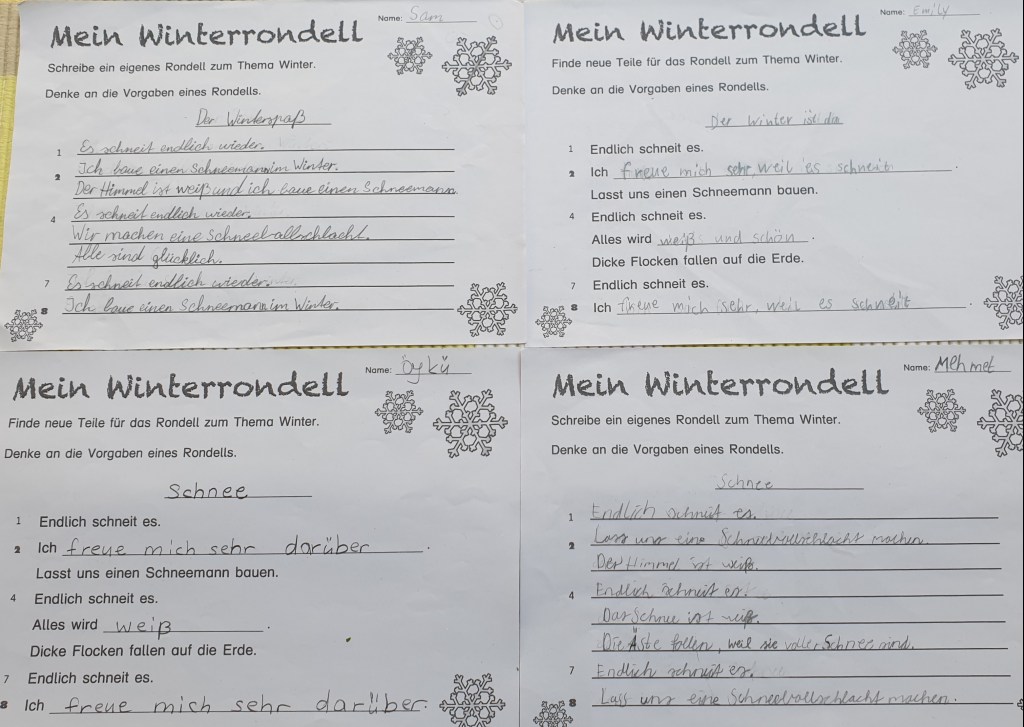 Name: Sam
Mein Winterrondell
Schreibe ein eigenes Rondell zum Thema Winter.
Denke an die Vorgaben eines Rondells.
Der Winterspaß
1 Es schneit endlich wieder.
2 Ich baue einen Schneemann im Winter.
Der Himmel ist weiß und ich baue einen Schneemann.
4 Es schneit endlich wieder.
Wir machen eine Schneeballschlacht.
Alle sind glücklich.
7 Es schneit endlich wieder.
8 Ich baue einen Schneemann im Winter.
Name: Emily
Mein Winterrondell
Finde neue Teile für das Rondell zum Thema Winter.
Denke an die Vorgaben eines Rondells.
Der Winter ist da
1 Endlich schneit es.
2 Ich freue mich sehr, weil es schneit.
Lasst uns einen Schneemann bauen.
4 Endlich schneit es.
Alles wird weiß und schön.
Dicke Flocken fallen auf die Erde.
7 Endlich schneit es.
8 Ich freue mich sehr, weil es schneit.
Name: Öykü
Mein Winterrondell
Finde neue Teile für das Rondell zum Thema Winter.
Denke an die Vorgaben eines Rondells.
Schnee
1 Endlich schneit es.
2 Ich freue mich sehr darüber.
Lasst uns einen Schneemann bauen.
4 Endlich schneit es.
Alles wird weiß.
Dicke Flocken fallen auf die Erde.
7 Endlich schneit es.
8 Ich freue mich sehr darüber.
Name: Mehmet
Mein Winterrondell
Schreibe ein eigenes Rondell zum Thema Winter.
Denke an die Vorgaben eines Rondells.
Schnee
1 Endlich schneit es.
2 Lass uns eine Schneeballschlacht machen.
Der Himmel ist weiß.
4 Endlich schneit es.
Das Schnee ist weiß.
Die Äste fallen, weil sie voller Schnee sind.
7 Endlich schneit es.
8 Lass uns eine Schneeballschlacht machen.